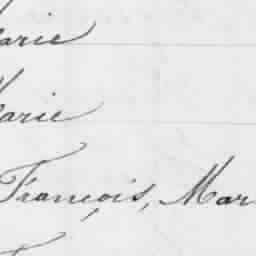 Marie
Marie
François, Mar